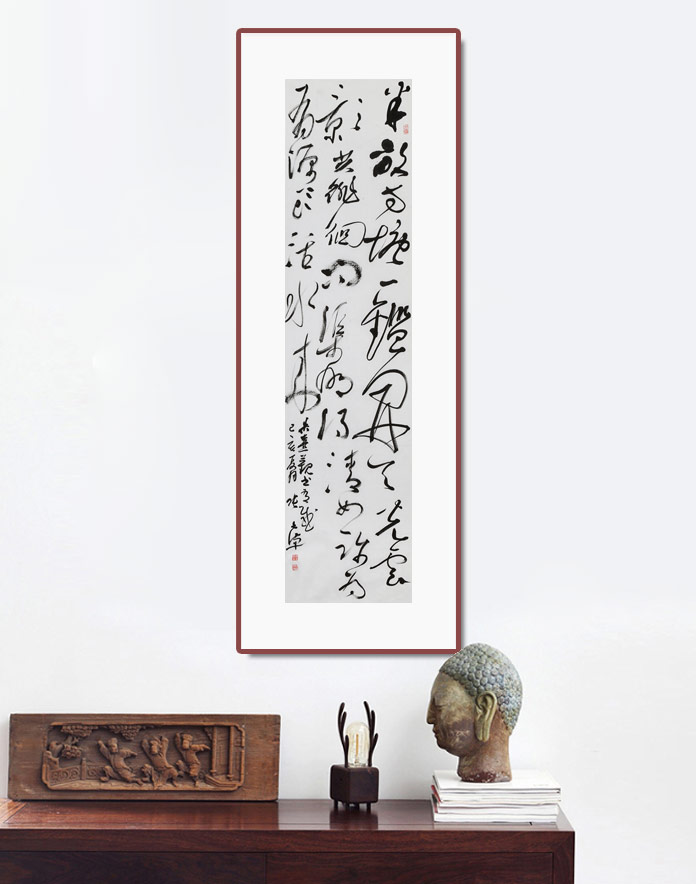 半畝方塘一鑑開天光雲
影共徘徊問渠那得清如許為
有源頭活水來
朱熹觀書有感
己亥夏月